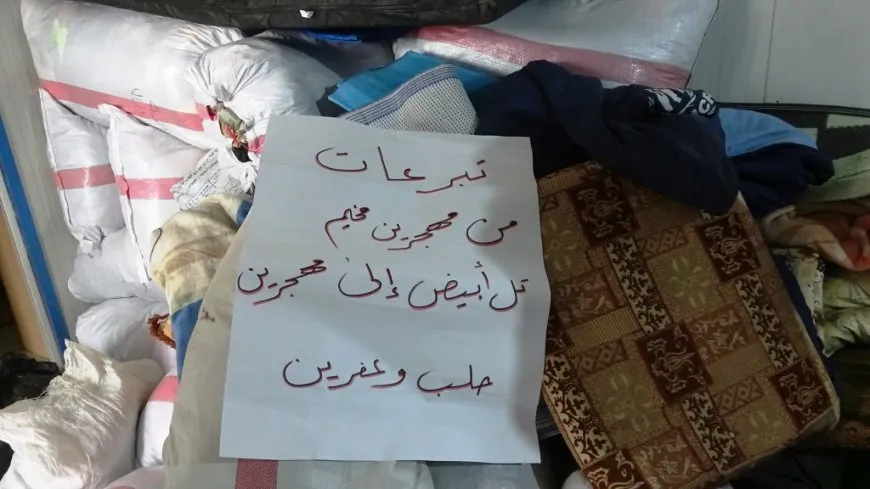 تبرعات
من مهجرين مخيم
تل أبيض إلى مهجرين
حلب وعفرين